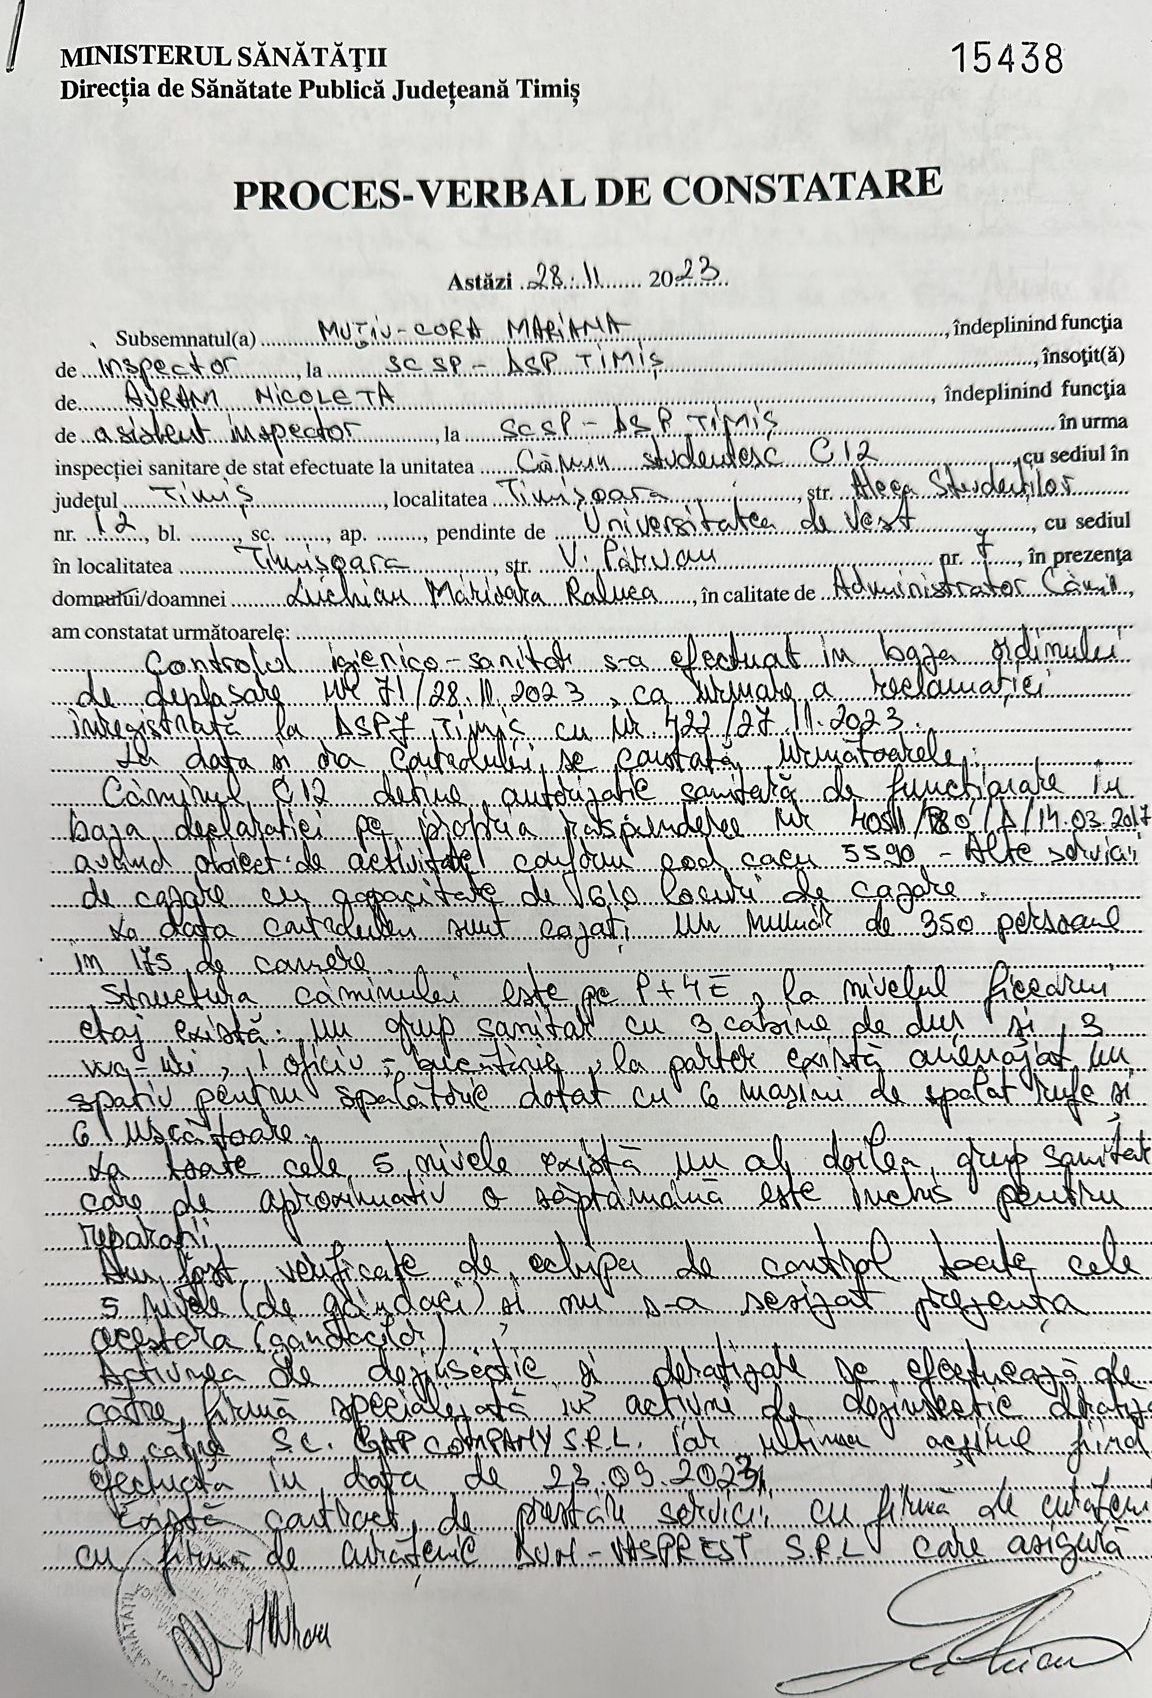 MINISTERUL SĂNĂTĂŢII
Direcţia de Sănătate Publică Judeţeană Timiş
15438
PROCES-VERBAL DE CONSTATARE
Astăzi 28.11 2023
Subsemnatul(a) MUŢIU-CORA MARIANA, îndeplinind funcţia
de inspector, la SCSP - DSP TIMIŞ, însoţit(ă)
de AVRAM NICOLETA, îndeplinind funcţia
de asistent inspector, la SCSP - DSP TIMIŞ în urma
inspecţiei sanitare de stat efectuate la unitatea Cămin studentesc C12, cu sediul în
judeţul Timiş, localitatea Timişoara, str. Aleea Studenţilor
nr. 12, bl. , sc. , ap. , pendinte de Universitatea de Vest, cu sediul
în localitatea Timişoara, str. V. Pârvan nr. 7, în prezenţa
domnului/doamnei Luchian Mărioara Raluca, în calitate de Administrator Cămin,
am constatat următoarele:
Controlul igienico-sanitar s-a efectuat în baza ordinului
de deplasare nr 71/28.11.2023, ca urmare a reclamaţiei
înregistrată la DSPJ Timiş cu nr. 422/27.11.2023.
La data şi ora controlului se constată următoarele:
Căminul C12 deţine autorizaţie sanitară de funcţionare în
baza declaraţiei pe propria răspundere nr /A/14.03.2017
având obiect de activitate conform cod caen 5590 - Alte servicii
de cazare cu capacitate de 610 locuri de cazare.
La data controlului sunt cazaţi un număr de 350 persoane
în 175 de camere.
Structura căminului este pe P+4E, la nivelul fiecărui
etaj există: un grup sanitar cu 3 cabine de duş şi 3
wc-uri, 1 oficiu - bucătărie, la parter există amenajat un
spaţiu pentru spălătorie dotat cu 6 maşini de spălat rufe şi
6 uscătoare.
La toate cele 5 nivele există un al doilea grup sanitar
care de aproximativ o săptămână este închis pentru
reparaţii.
Au fost verificate de echipa de control toate cele
5 nivele (de gândaci) şi nu s-a sesizat prezenţa
acestora (gandacilor)
Acţiunea de dezinsecţie şi deratizare se efectuează de
către firmă specializată în acţiuni de dezinsecţie deratiz
de către SC. GAP COMPANY S.R.L. iar ultima acţiune fiind
efectuată în data de 23.09.2023.
Există contract de prestări servicii cu firmă de curăţenie
cu firmă de curăţenie S.R.L care asigură